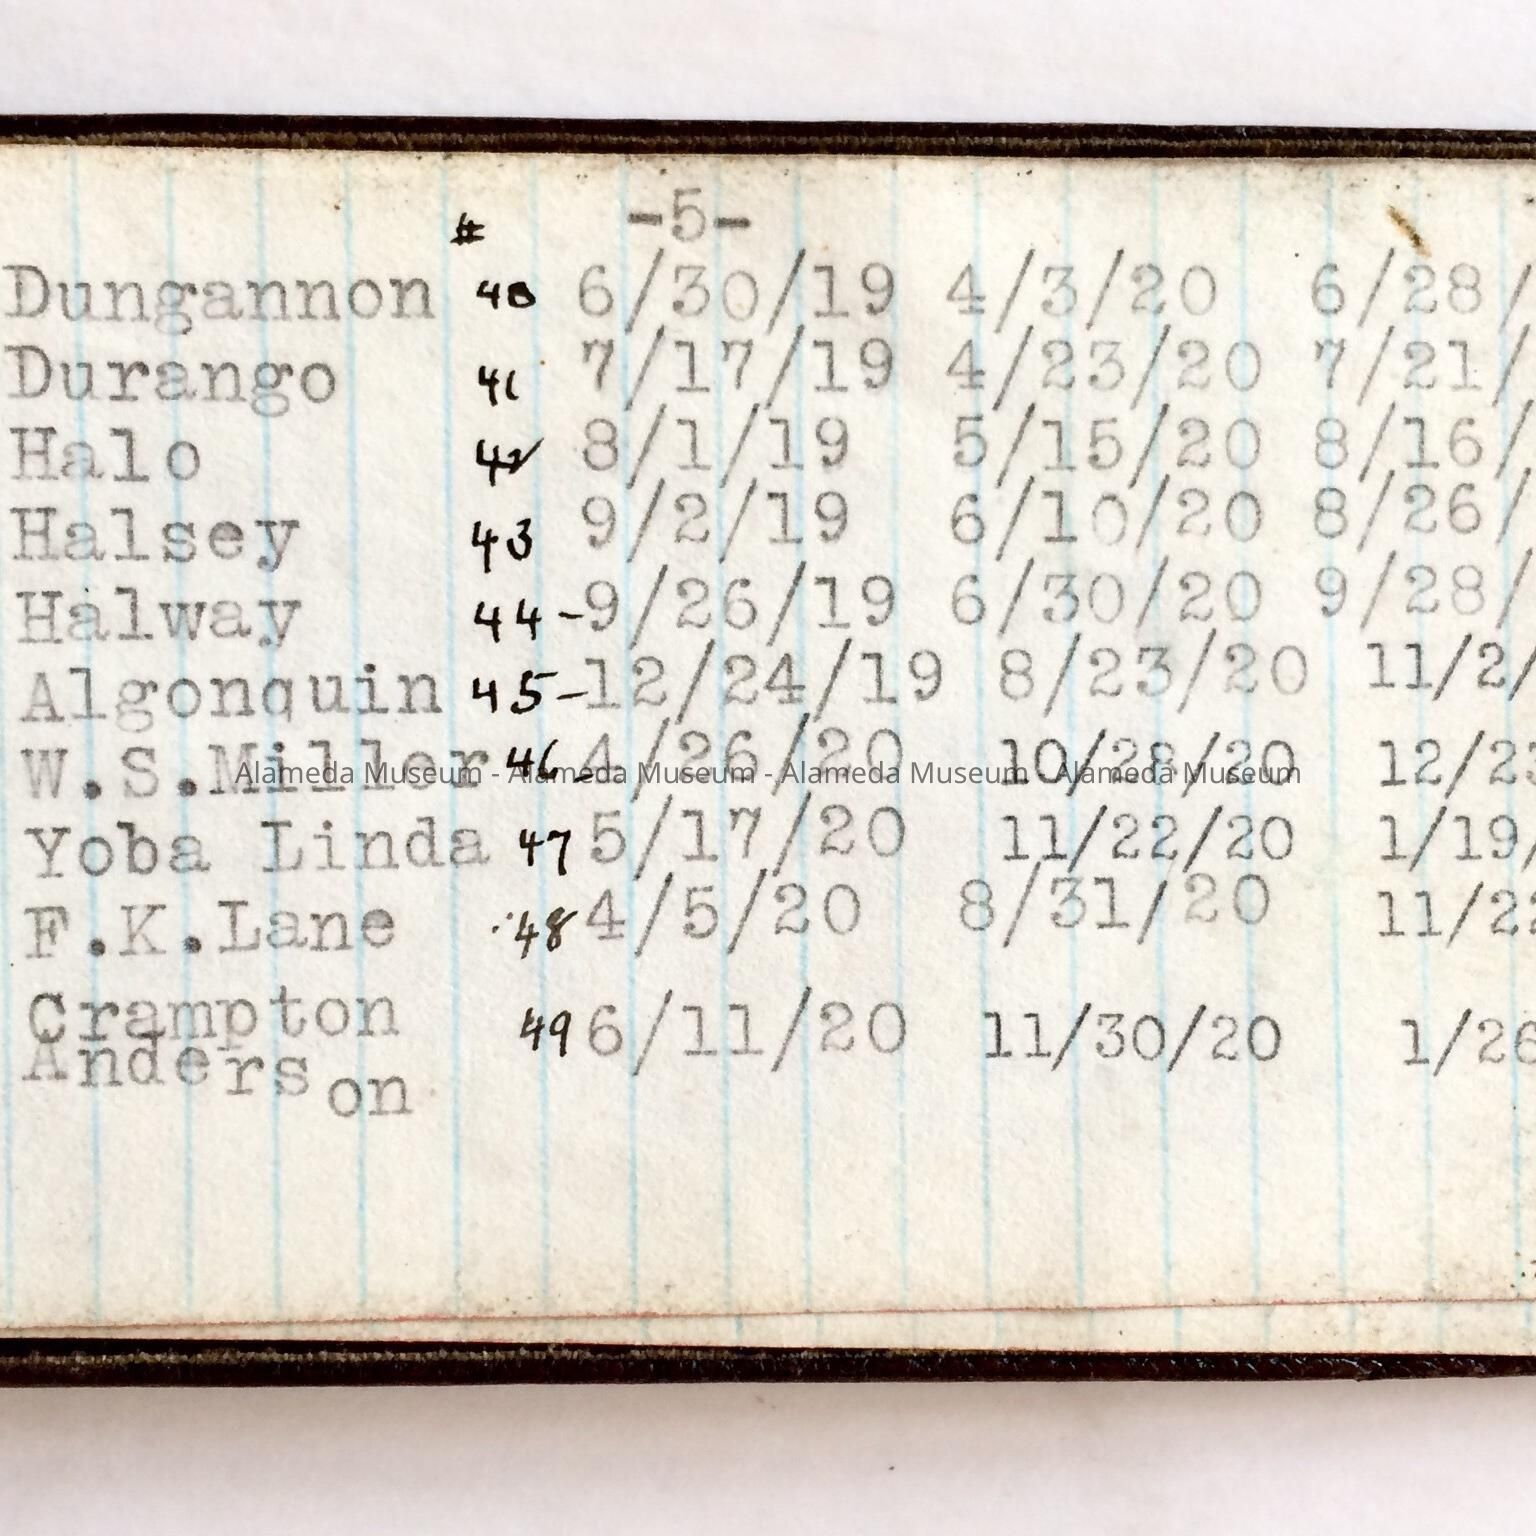 -5-
#
Dungannon 40 6/30/19 4/3/20 6/28/
Durango 41 7/17/19 4/23/20 7/21/
Halo 42 8/1/19 5/15/20 8/16/
Halsey 43 9/2/19 6/10/20 8/26/
Halway 44-9/26/19 6/30/20 9/28/
Algonquin 45-12/24/19 8/23/20 11/2/
W.S.Miller 46-4/26/20 10/28/20 12/23
Alameda Museum - Alameda Museum - Alameda Museum - Alameda Museum
Yoba Linda 47 5/17/20 11/22/20 1/19/
F.K.Lane 48 4/5/20 8/31/20 11/22
Crampton 49 6/11/20 11/30/20 1/26
Anderson